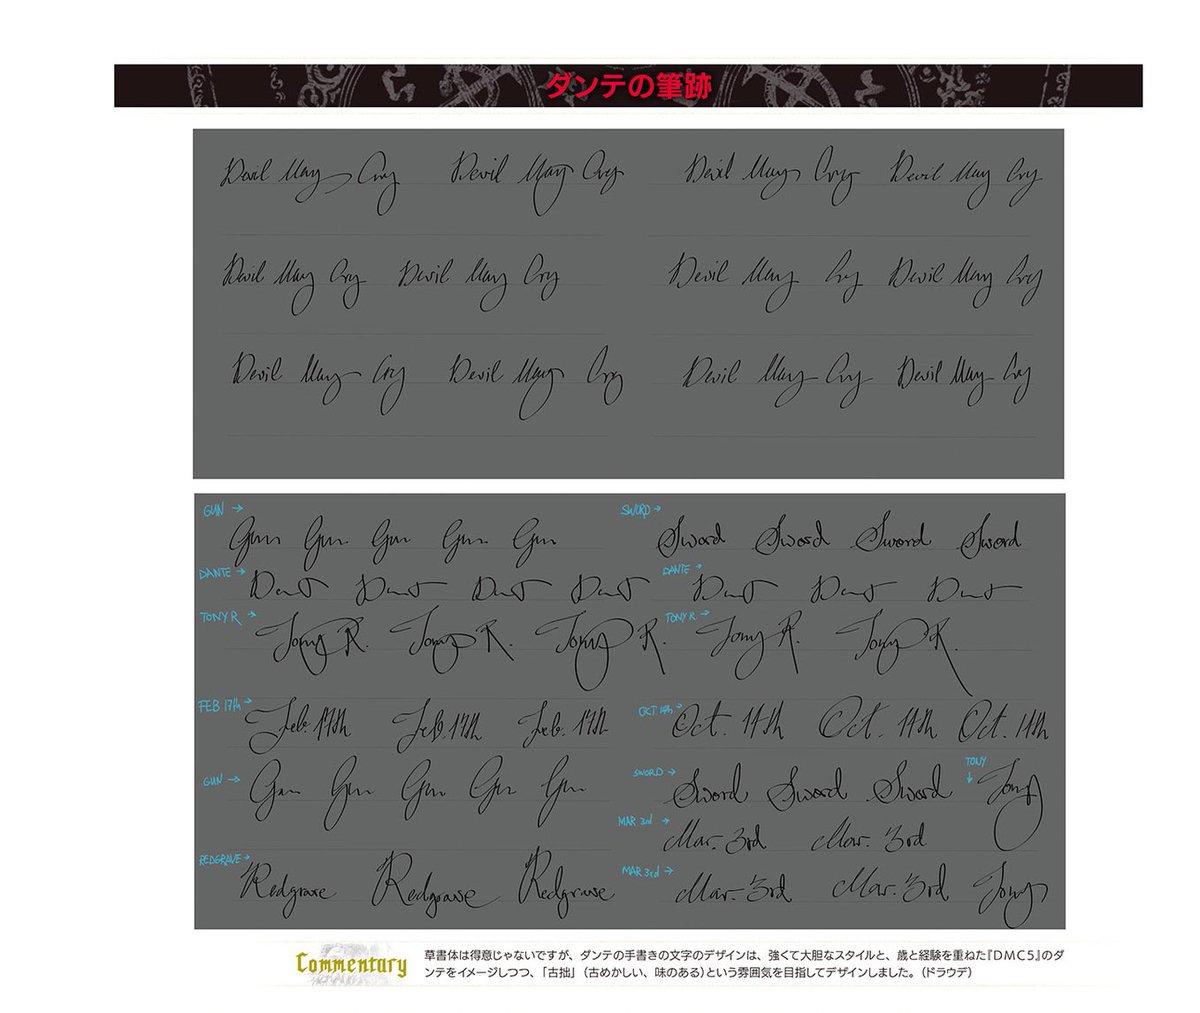 ダンテの筆跡
Devil May Cry Devil May Cry Devil May Cry Devil May Cry
Devil May Cry Devil May Cry Devil May Cry Devil May Cry
Devil May Cry Devil May Cry Devil May Cry Devil May Cry
GUN → Gun Gun Gun Gun Gun SWORD → Sword Sword Sword Sword
DANTE → Dante Dante Dante Dante DANTE → Dante Dante Dante
TONY R → Tony R. Tony R. Tony R. TONY R. → Tony R. Tony R.
FEB 17th → Feb. 17th Feb. 17th Feb. 17th OCT 14th → Oct. 14th Oct. 14th Oct. 14th
GUN → Gun Gun Gun Gun Gun SWORD → Sword Sword Sword TONY ↓ Tony
MAR 3rd → Mar. 3rd Mar. 3rd
REDGRAVE → Redgrave Redgrave Redgrave MAR 3rd → Mar. 3rd Mar. 3rd Tony
Commentary
草書体は得意じゃないですが、ダンテの手書きの文字のデザインは、強くて大胆なスタイルと、歳と経験を重ねた『DMC5』のダ
ンテをイメージしつつ、「古拙」（古めかしい、味のある）という雰囲気を目指してデザインしました。（ドラウデ）